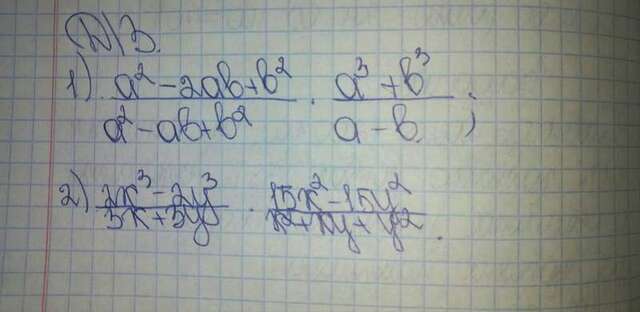 Д/З.
1) (a² - 2ab + b²)/(a² - ab + b²) · (a³ + b³)/(a - b);
2) (2x³ - 2y³)/(5x + 5y) · (15x² - 15y²)/(x² + xy + y²).